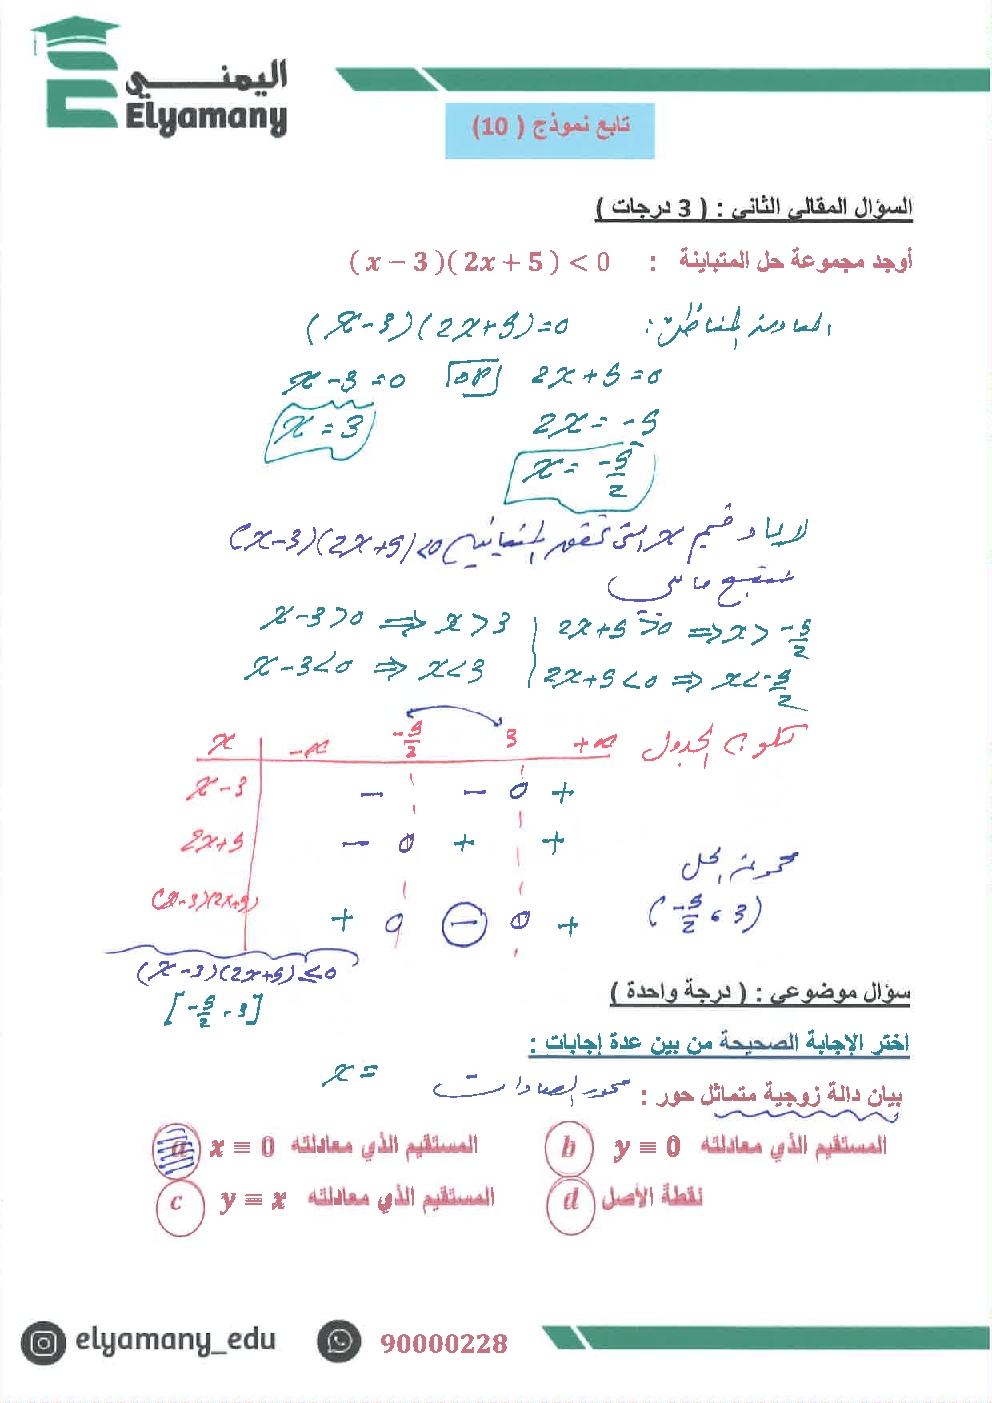 اليمني
Elyamany
تابع نموذج ( 10 )
السؤال المقالي الثاني : ( 3 درجات )
أوجد مجموعة حل المتباينة : ( x − 3 )( 2x + 5 ) < 0
المعادلة المناظرة: (x-3)(2x+5)=0
x-3=0 or 2x+5=0
x=3 2x=-5
x=-5/2
لإيجاد قيم x التي تحقق المتباينة (x-3)(2x+5)<0
نتبع ما يلي
x-3>0 ⇒ x>3 | 2x+5>0 ⇒ x>-5/2
x-3<0 ⇒ x<3 | 2x+5<0 ⇒ x<-5/2
نكون الجدول
x -∞ -5/2 3 +∞
x-3 - - 0 +
2x+5 - 0 + +
(x-3)(2x+5) + 0 - 0 +
مجموعة الحل
(-5/2 ، 3)
(x-3)(2x+5)≤0
[-5/2 ، 3]
سؤال موضوعي : ( درجة واحدة )
اختر الإجابة الصحيحة من بين عدة إجابات :
x =
بيان دالة زوجية متماثل حور : محور الصادات
a المستقيم الذي معادلته x = 0
b المستقيم الذي معادلته y = 0
c المستقيم الذي معادلته y = x
d نقطة الأصل
elyamany_edu 90000228